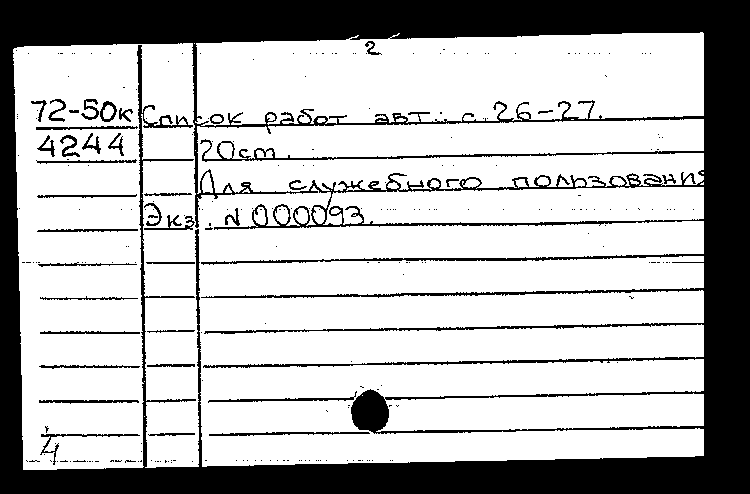 2
72-50к Список работ авт.: с. 26-27.
4244 20cm.
Для служебного пользования
Экз. N 000093.
4